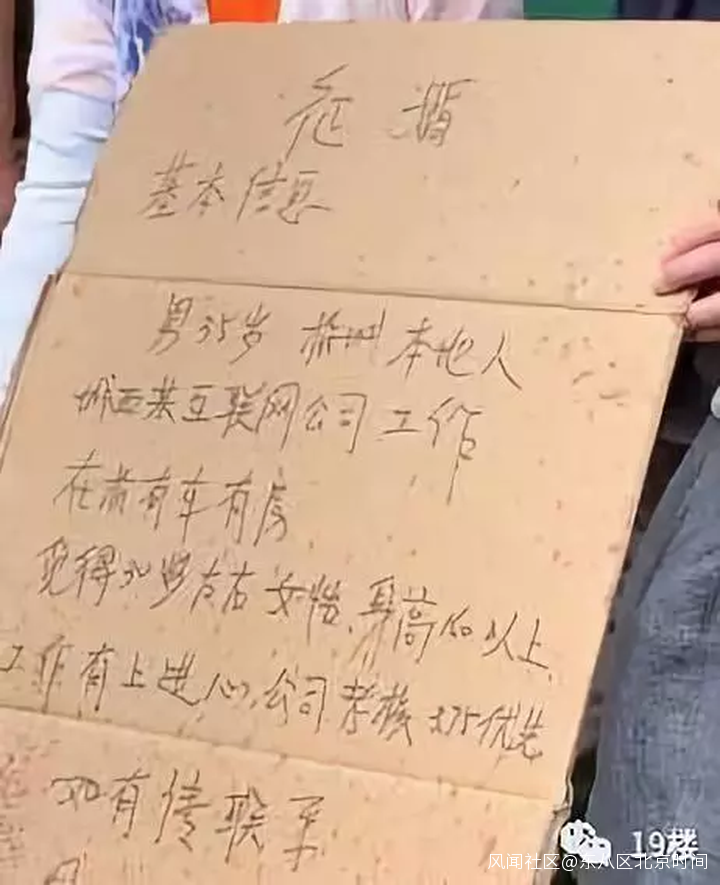 征 婚
基本信息
男35岁 杭州 本地人
城西某互联网公司 工作
在杭有车有房
觅得30岁左右 女性、身高160以上、
工作有上进心、公司考核375优先
如有情联系
19楼
风闻社区@东八区北京时间